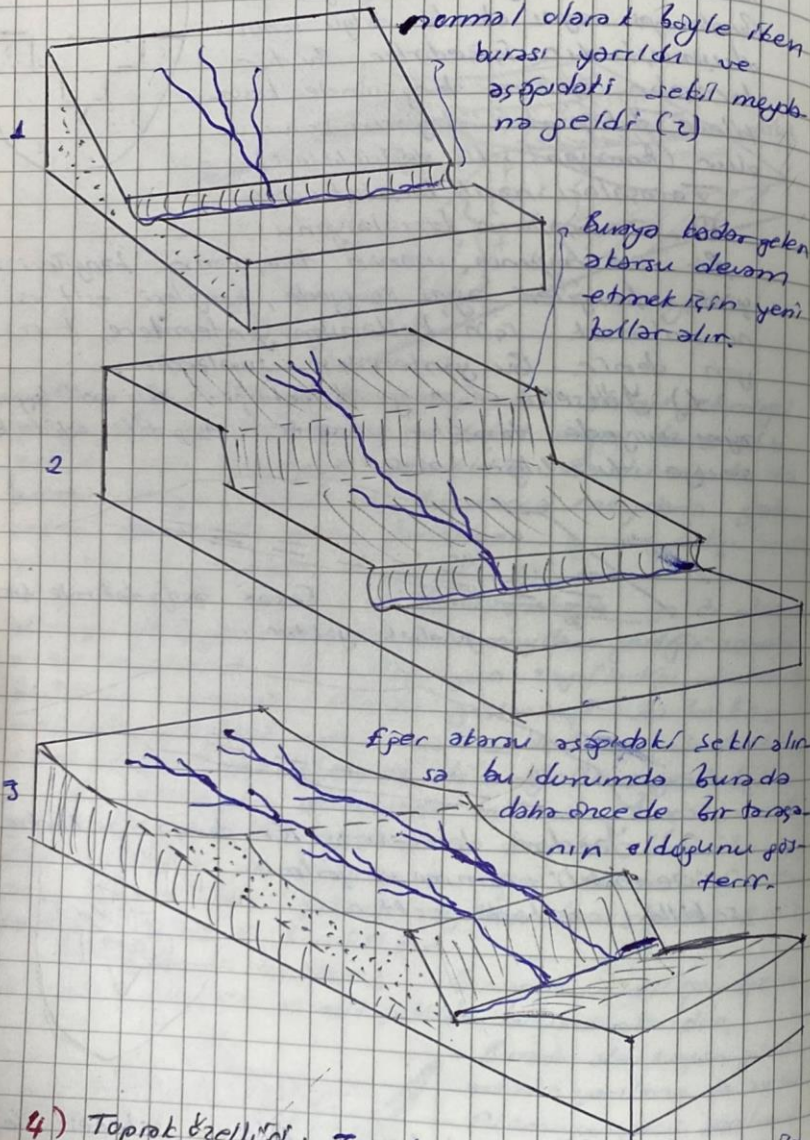 normal olarak böyle iken
burası yarıldı ve
aşağıdaki şekil meyda-
na geldi (2)
1
Buraya kadar gelen
akarsu devam
etmek için yeni
kollar alır.
2
Eğer akarsu aşağıdaki şekli alır-
sa bu durumda burada
daha önce de bir taraça-
nın olduğunu gös-
terir.
3
4) Toprak özelliği